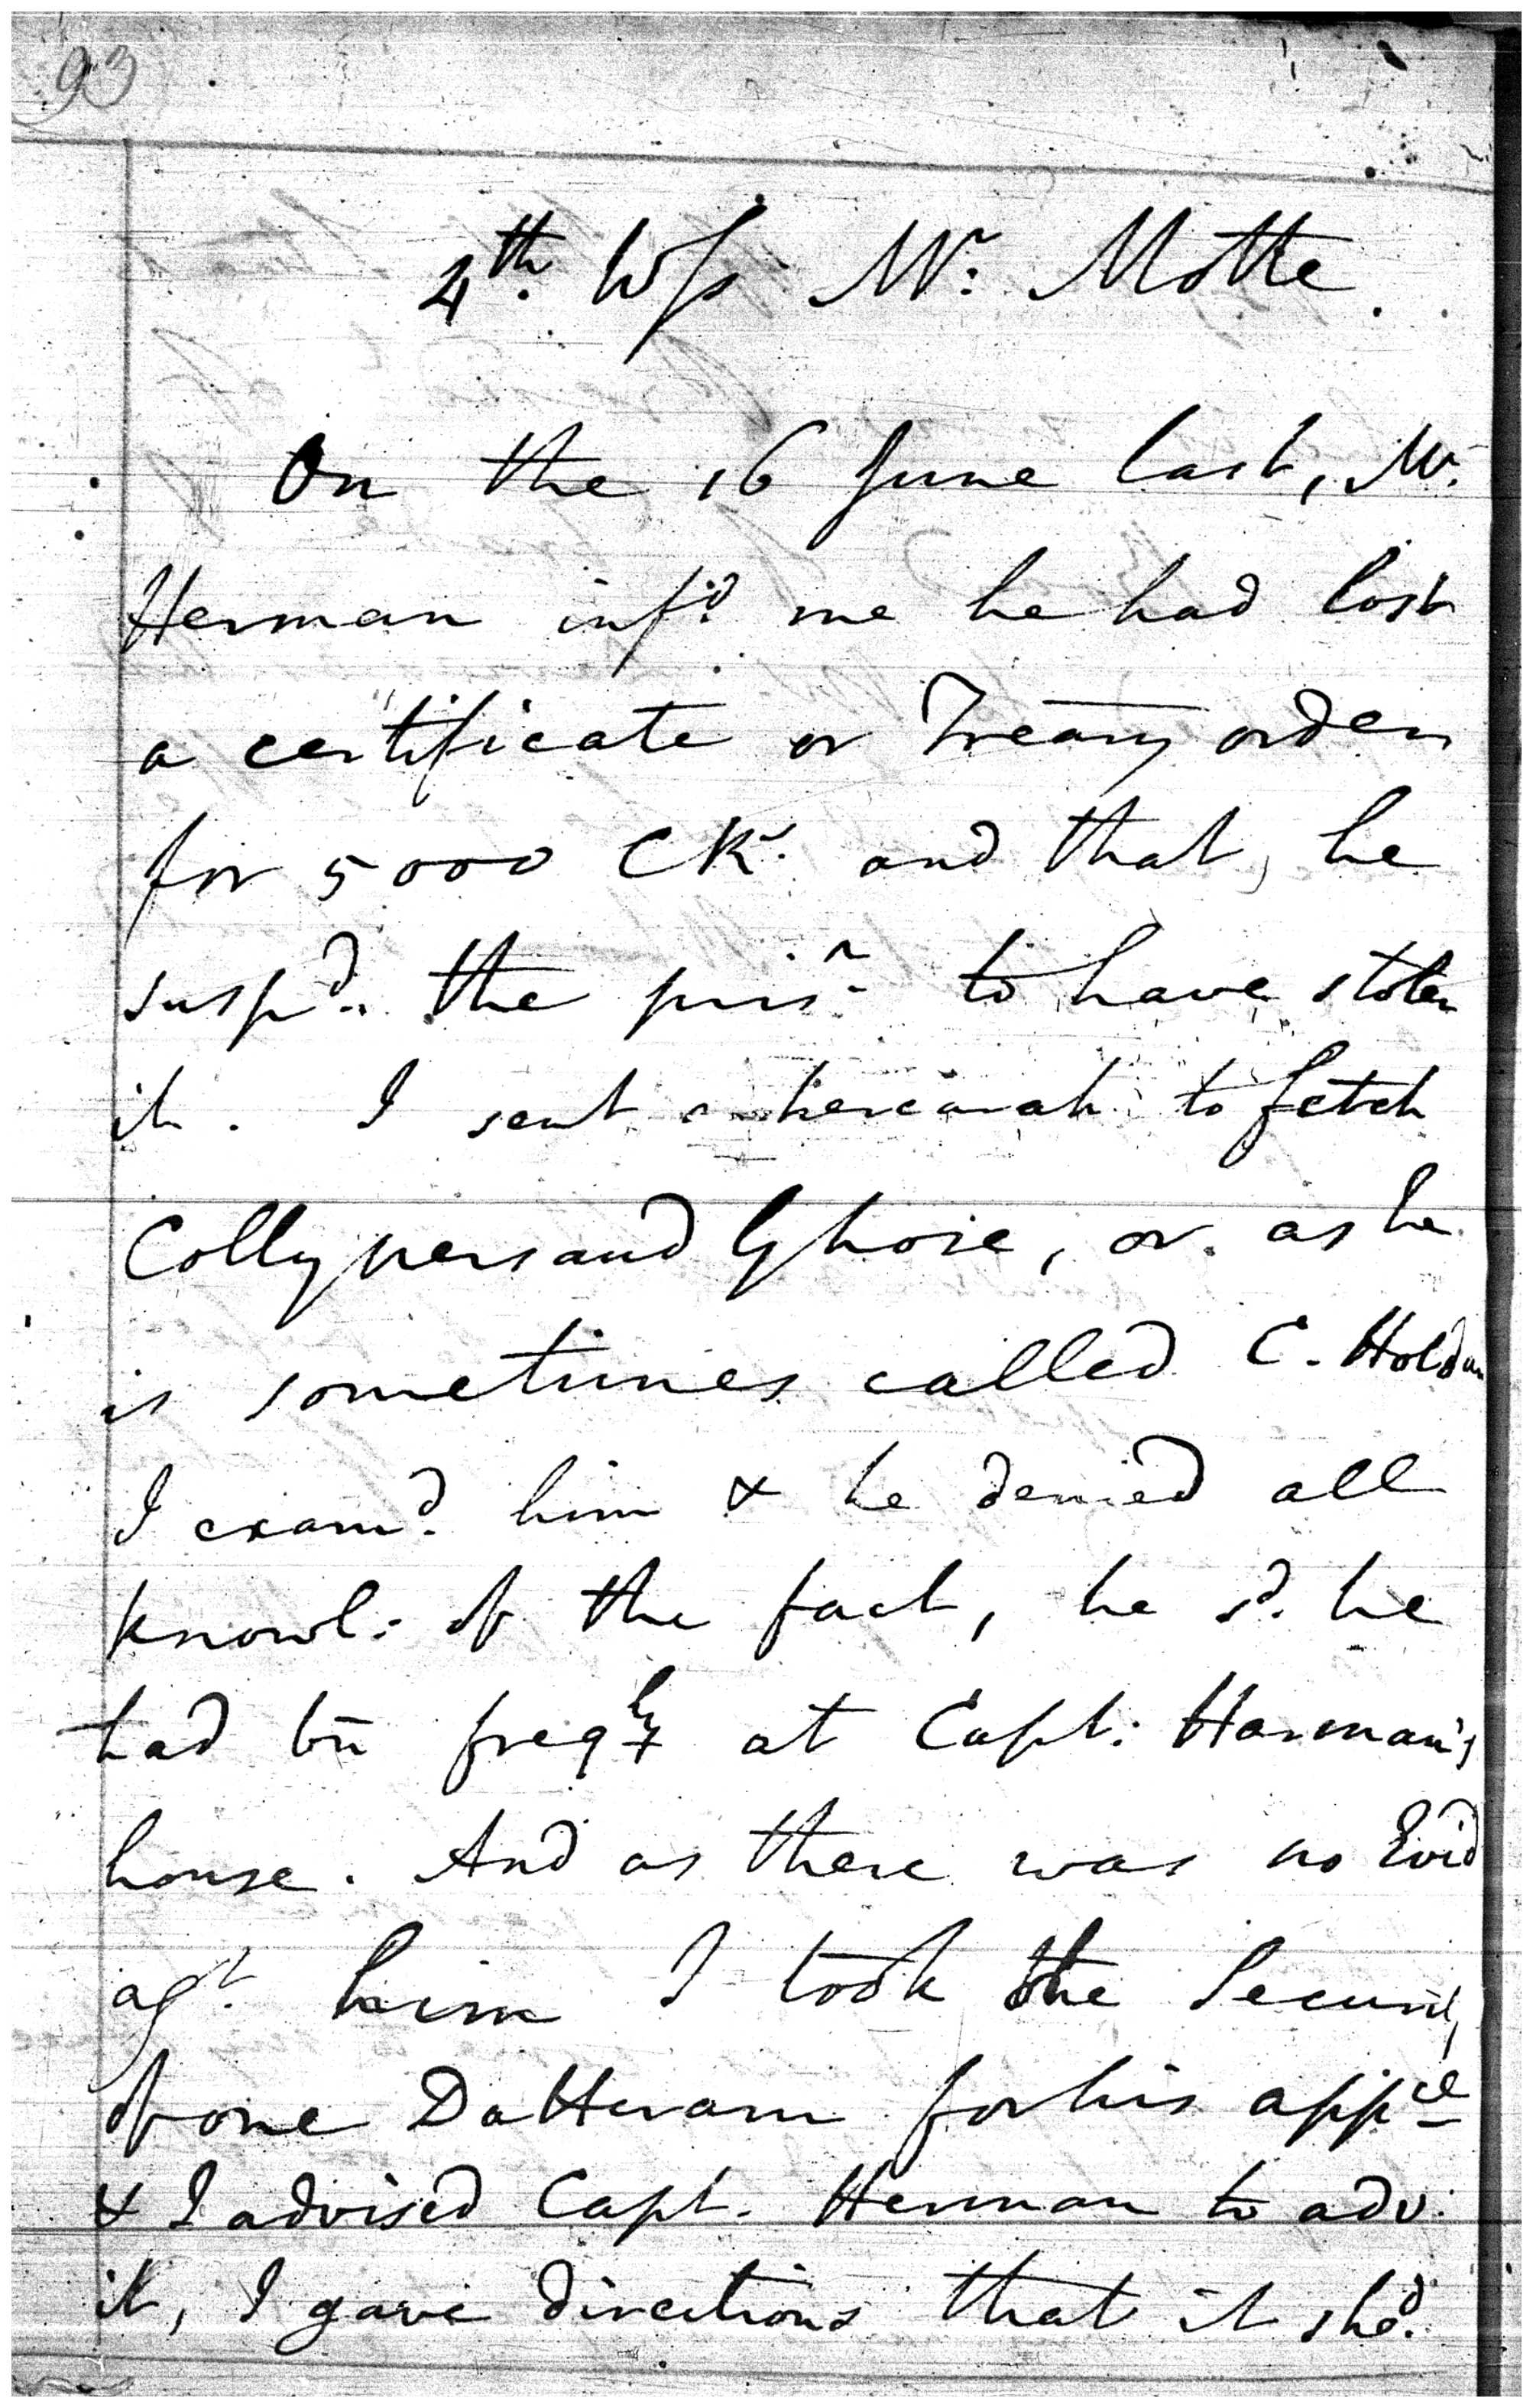 93
4th. Wss Mr: Motte.
On the 16 June last, Mr.
Herman infd. me he had lost
a certificate or Treary order
for 5000 CRs. and that, he
suspd. the prisr. to have stolen
it. I sent a hercarah to fetch
Collypersaud Ghose, or as he
is sometimes called C. Holdar
I examd. him & he denied all
knowl: of the fact, he sd. he
had bn freqly at Capt: Harman's
house. And as there was no Evid
agt. him I took the Security
of one Datteram for his appce
& I advised Capt. Herman to adv:
it, I gave directions that it shd.